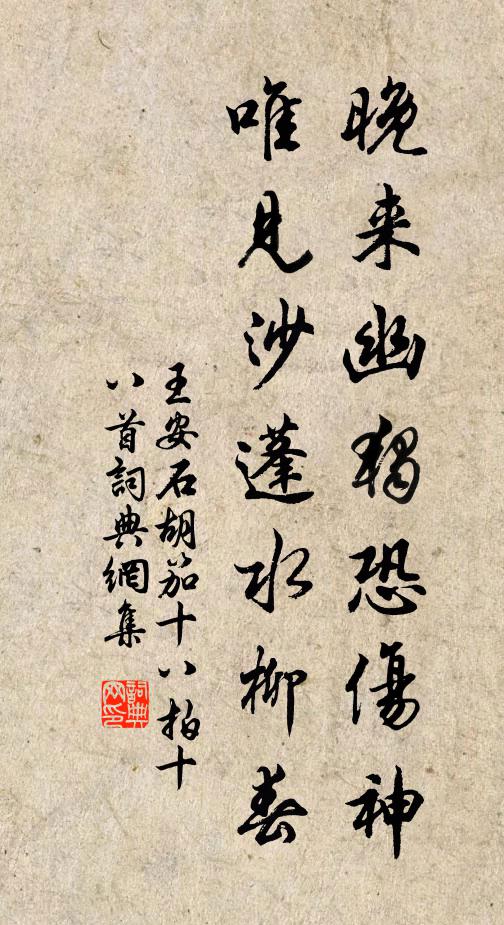 晚来幽獨恐傷神
唯見沙蓬水柳春
王安石胡笳十八拍十
八首詞典網集
詞典
网印